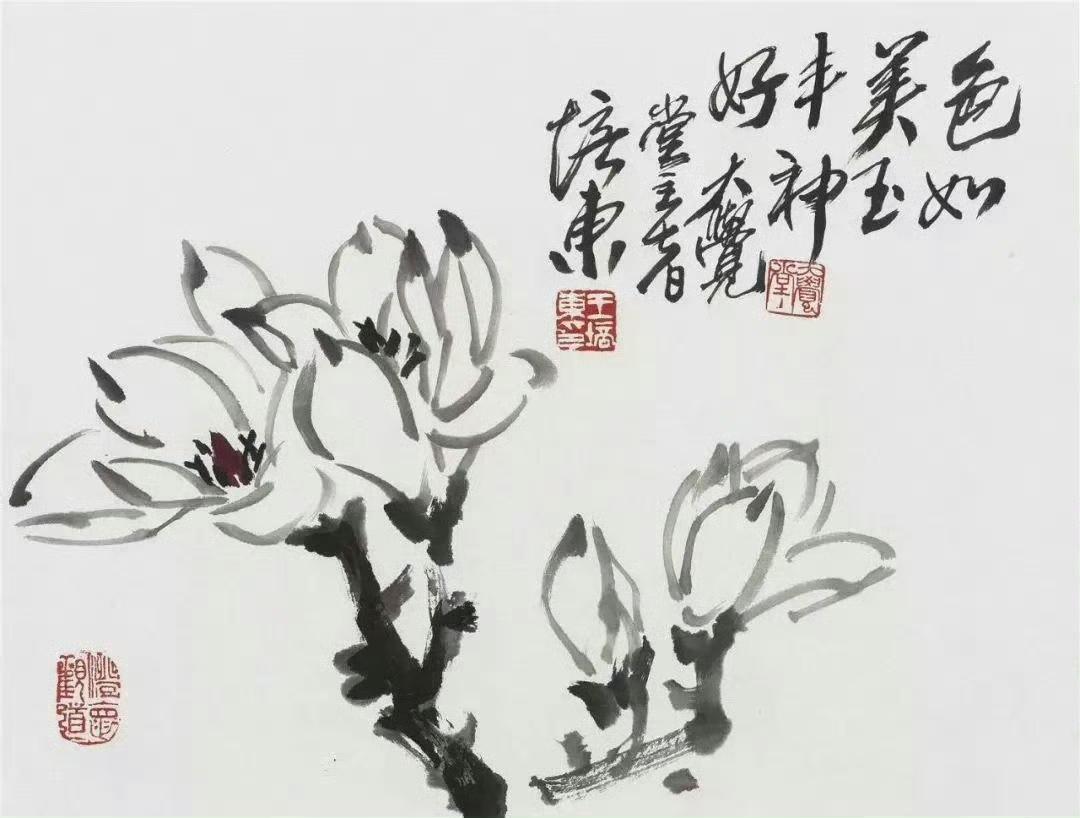 色如
美玉
丰神
好大觉
堂主者
培东
大覺堂
王培東印
澄懷觀道